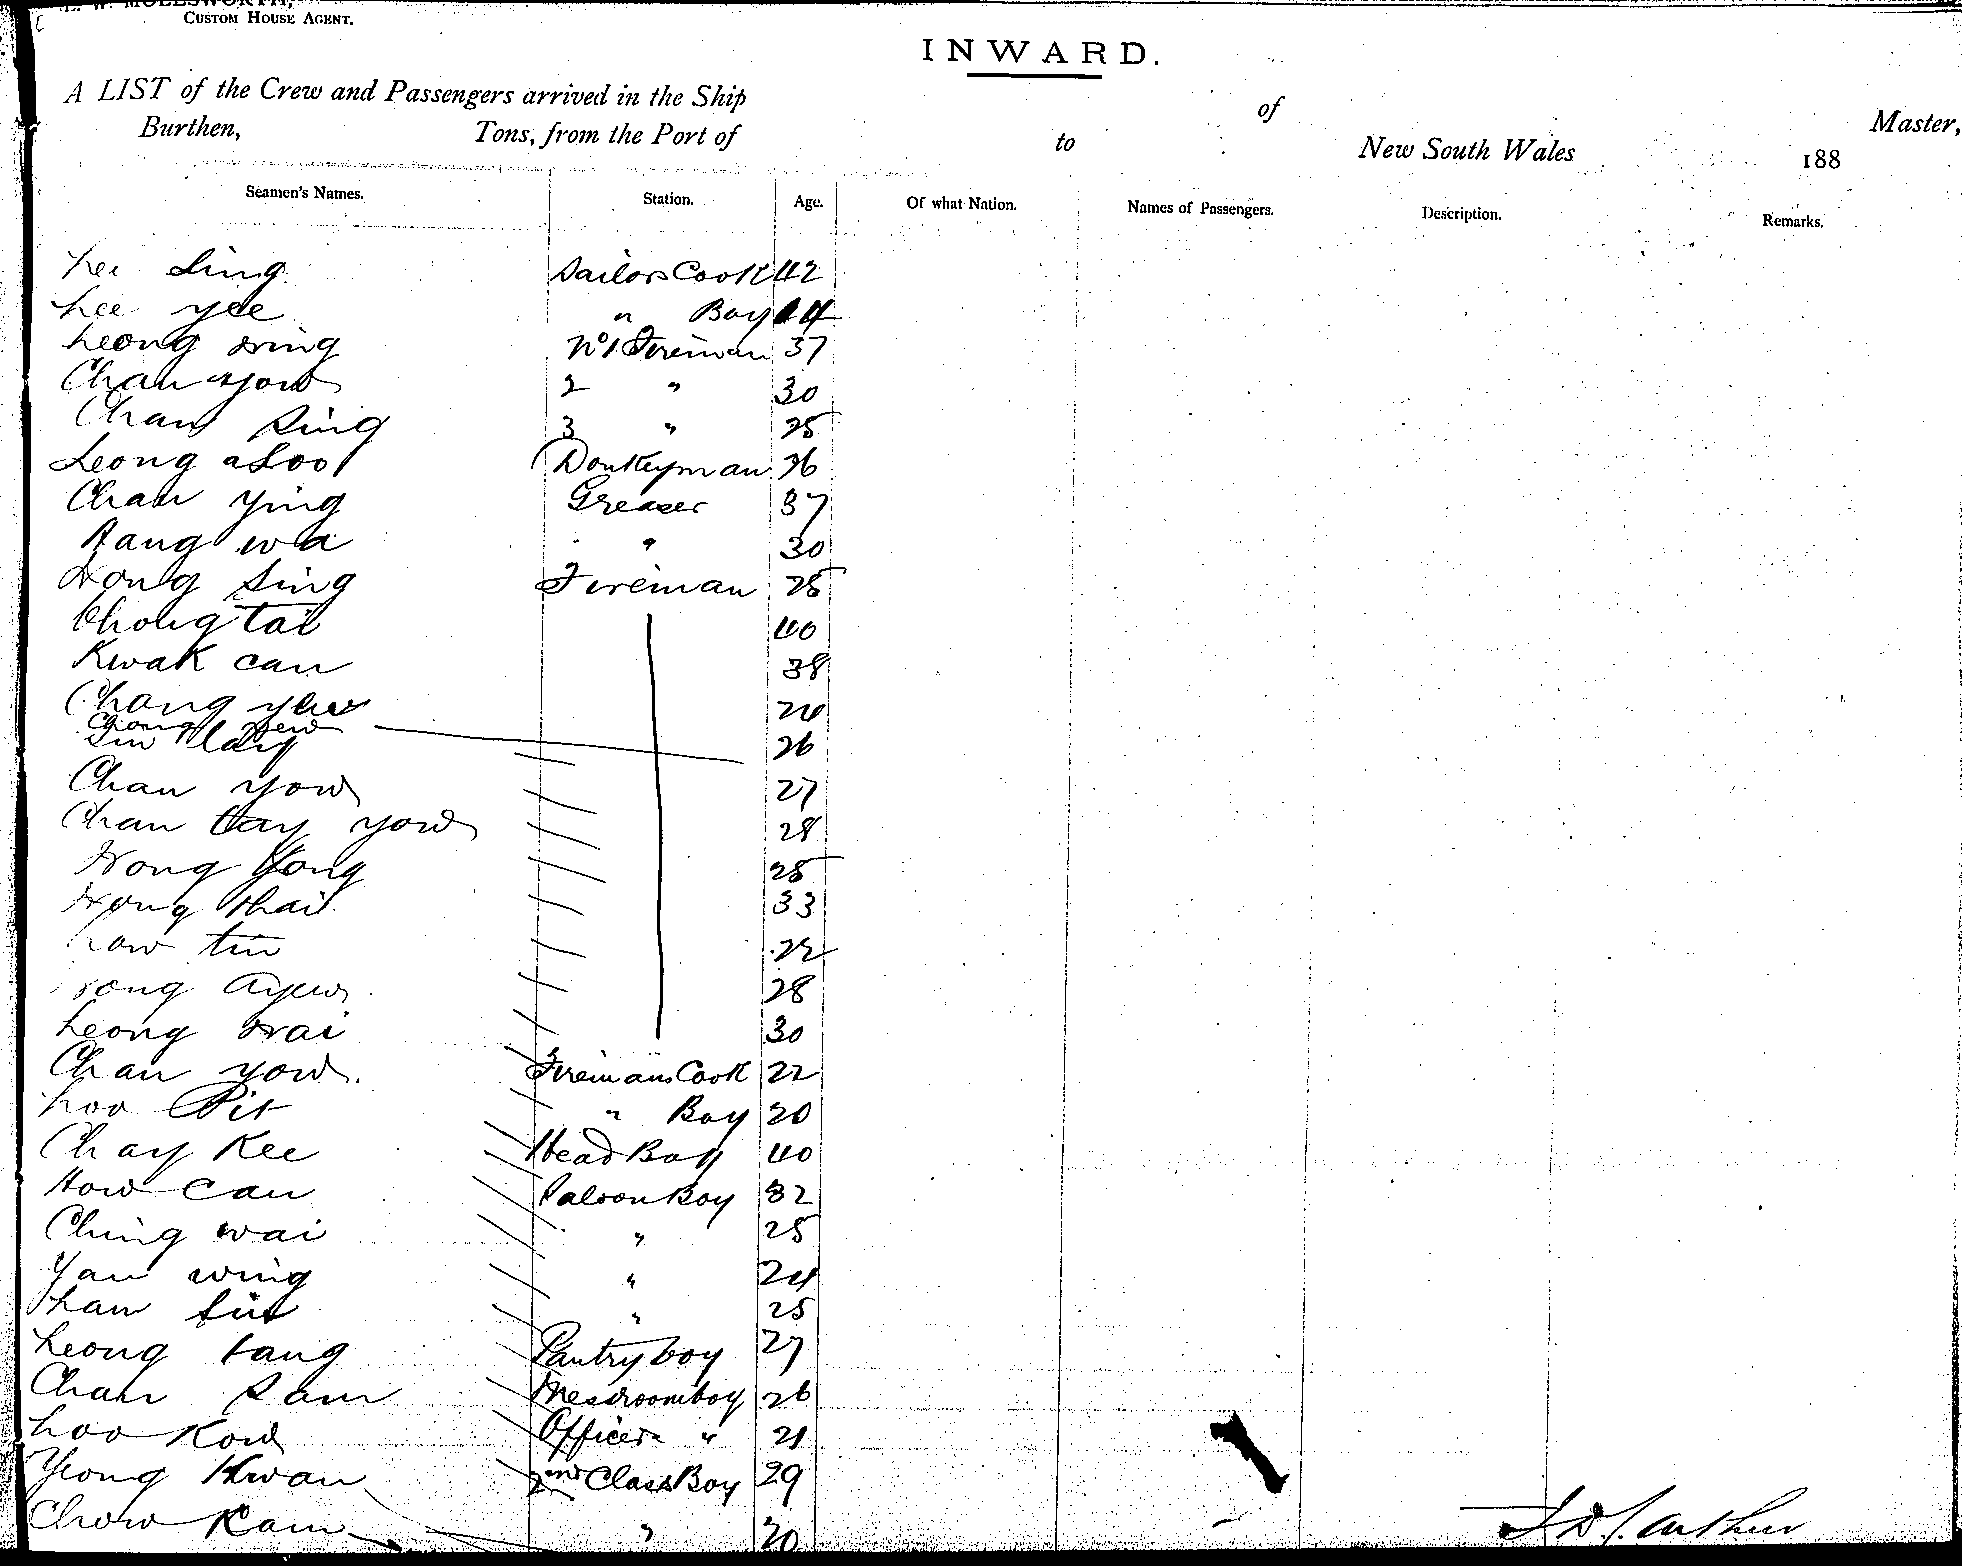 MOLESWORTH,
CUSTOM HOUSE AGENT.
INWARD.
A LIST of the Crew and Passengers arrived in the Ship of Master,
Burthen, Tons, from the Port of to New South Wales 188
Seamen's Names. Station. Age. Of what Nation. Names of Passengers. Description. Remarks.
Lee Sing Sailors Cook 42
Lee yee " Boy 14
Leong wing No 1 Fireman 37
Chan yow 2 " 30
Chan Sing 3 " 25
Leong aLoo Donkeyman 36
Chan Ying Greaser 37
wa " 30
Wong Sing Fireman 25
Chong tai 40
Kwak can 38
Chong yew 24
Chong yew
26
Chan yow 27
Chan tay yow 28
Wong Yong 25
Wong thai 33
Low tin 22
Ayew 28
Leong wai 30
Chan yow. Firemans Cook 22
Loo Pit " Boy 20
Chay Kee Head Boy 40
How Can Saloon Boy 32
Ching wai " 25
Yan wing " 24
" 25
Leong tang Pantry boy 27
Chan Sam Messroom boy 26
Loo Kow Officers " 21
Yeong Kwan 2nd Class Boy 29
Chow Kam " 20